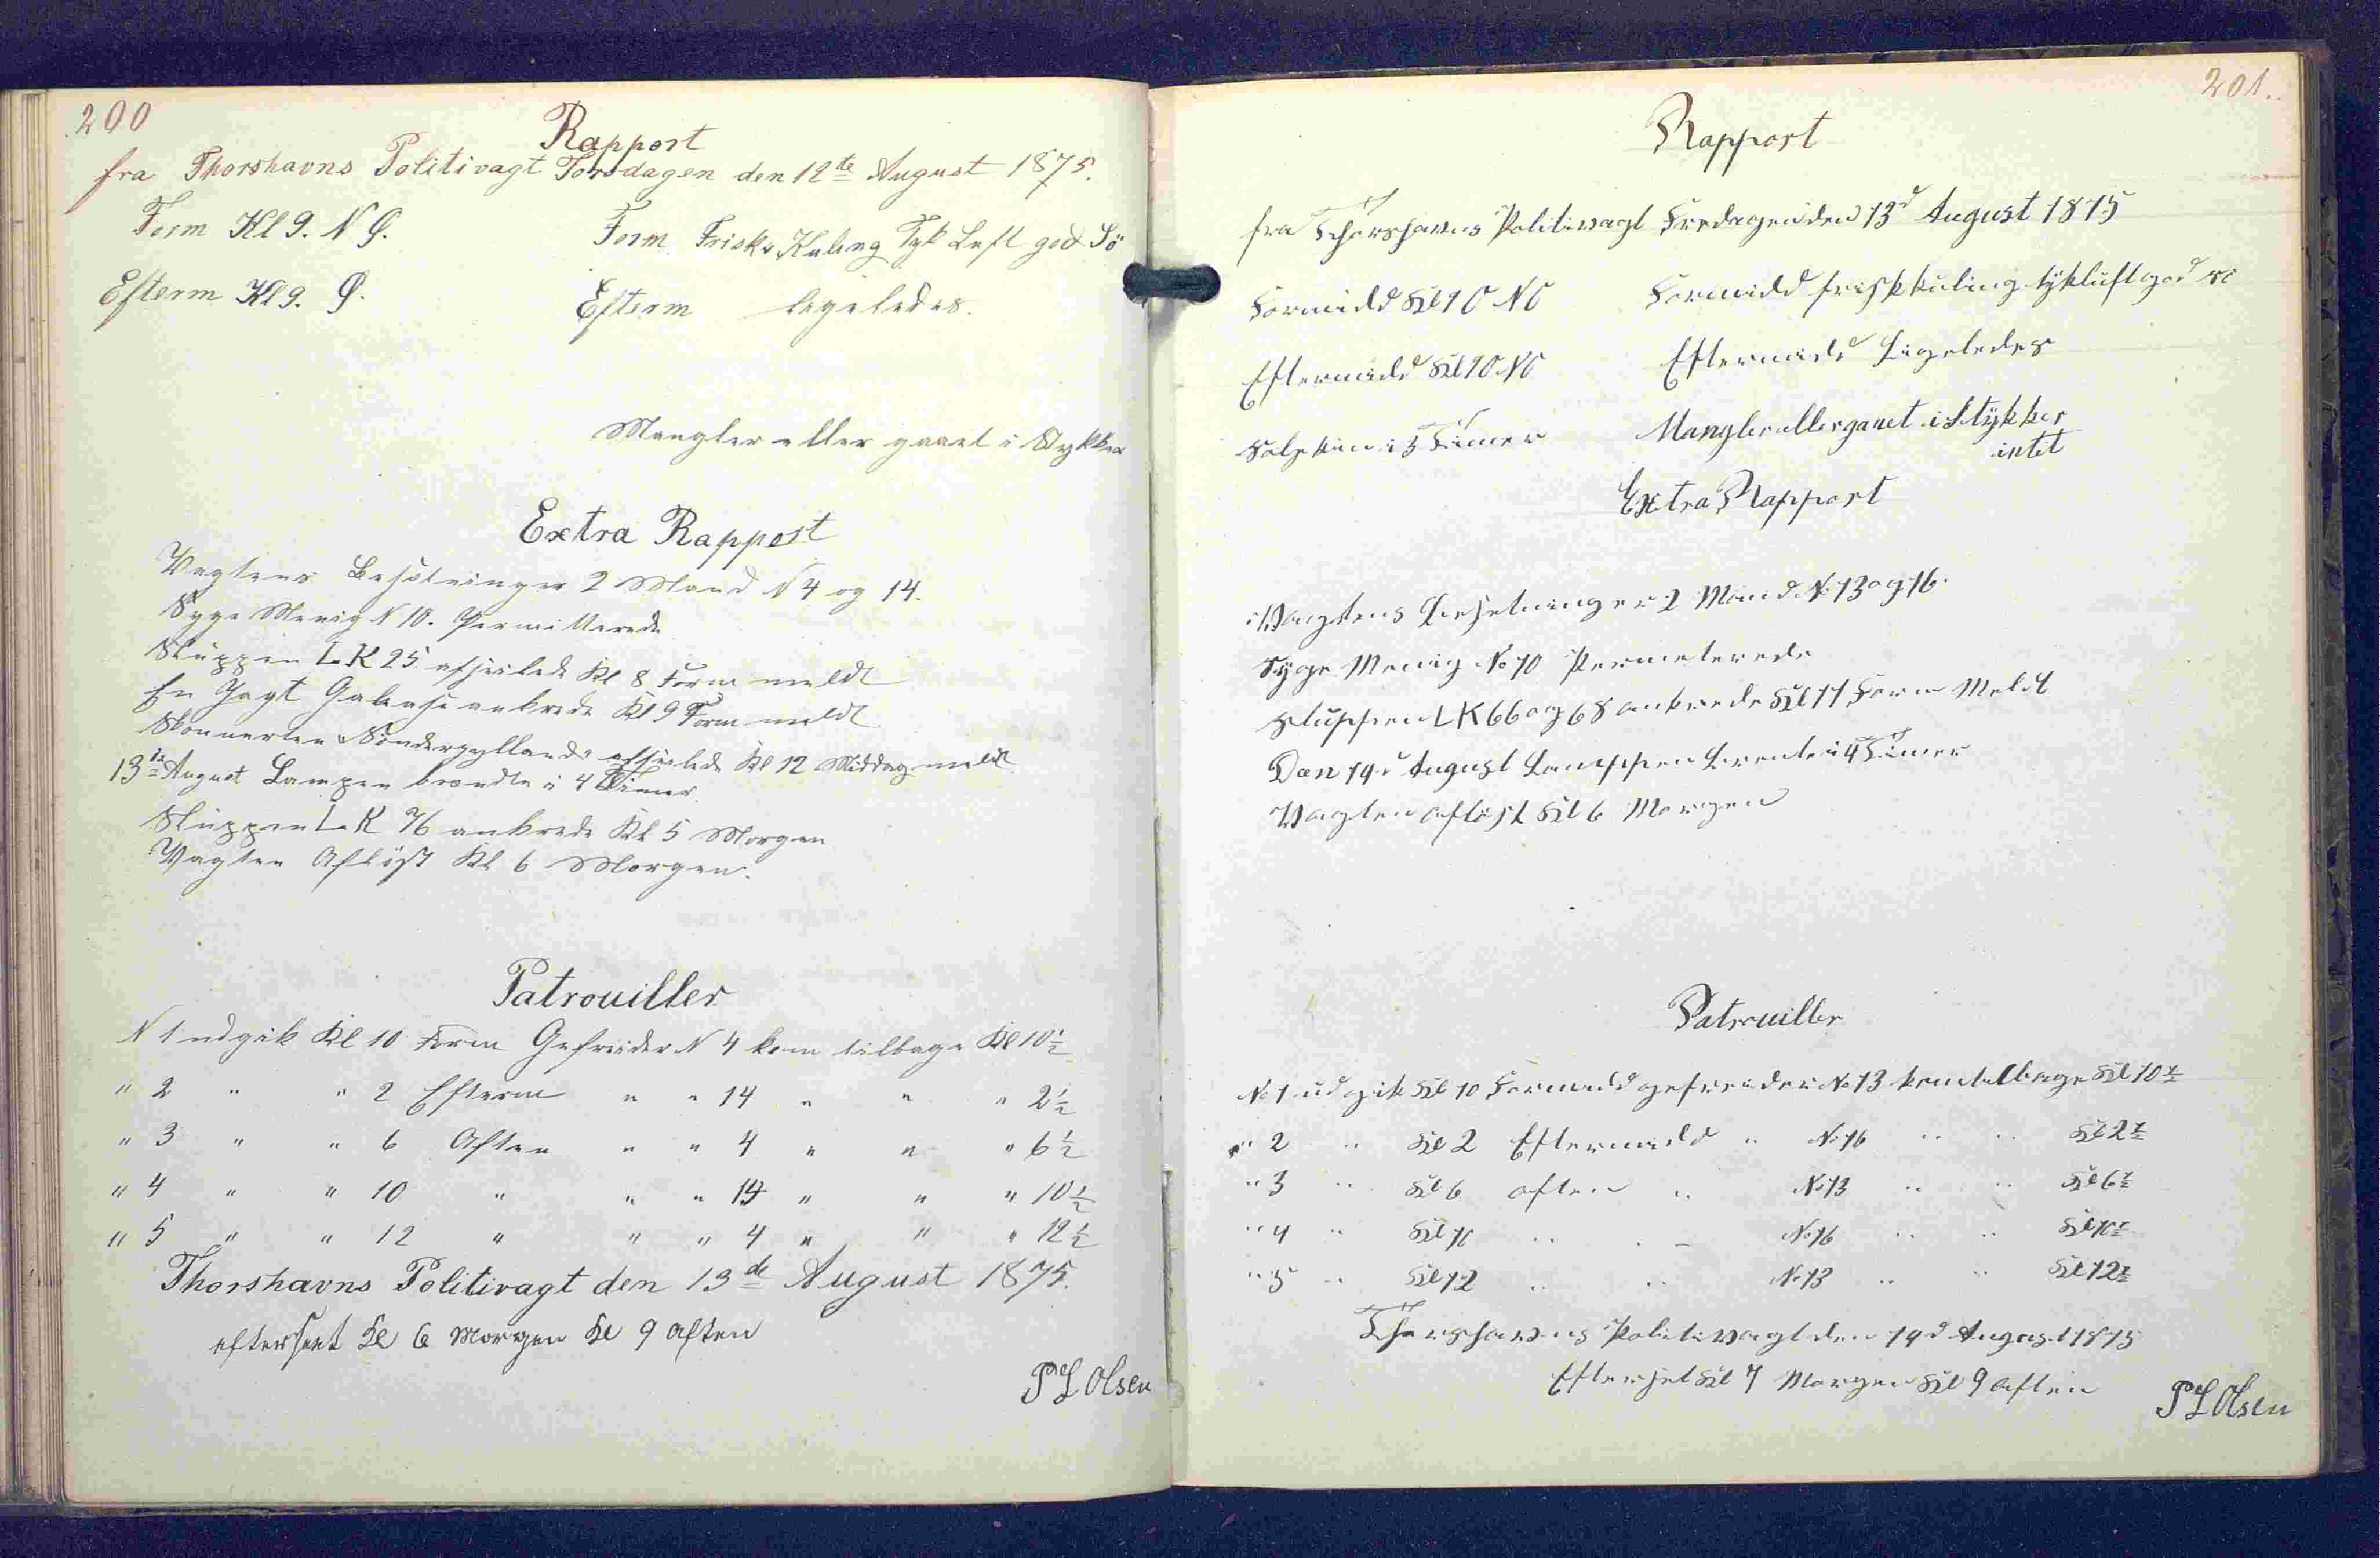 200
Rapport
fra Thorshavns Politivagt Torsdagen den 12te August 1875.
Form Kl 9. N Ø.
Form Frisk Kuling Tyk Luft god Sö
Efterm Kl 9. Ø.
Efterm ligeledes.
Mangler eller gaaet i Stykker
Extra Rappost
Vagtens Besætninger 2 Mand N 4 og 14.
Syge Menig N 10. Permitterede
Sluppen L K 25 afseilede Kl 8 Form meldt
En Jagt Galease ankrede Kl 9 Form meldt
Skonnerten Sönderjylland afseilede Kl 12 Middag meldt
13de August Lampen brændte i 4 Timer
Sluppen L K 76 ankrede Kl 5 Morgen
Vagten Aflöst Kl 6 Morgen.
Patrouiller
N 1 udgik Kl 10 Form Gefreider N 4 kom tilbage Kl 10½
" 2 " " 2 Efterm " " 14 " " " 2½
" 3 " " 6 Aften " " 4 " " " 6½
" 4 " " 10 " " " 14 " " " 10½
" 5 " " 12 " " " 4 " " " 12½
Thorshavns Politivagt den 13de August 1875.
efterseet Kl 6 Morgen Kl 9 Aften
P L Olsen
201.
Rapport
fra Thorshavns Politivagt Fredagen den 13d August 1875
Formidd Kl 10 NO
Formidd frisk kuling tykluft god sö
Eftermidd Kl 10 NO
Eftermidd Ligeledes
Solskin i 3 Timer
Mangler eller gaaet i Stykker
intet
Extra Rapport
Vagtens Besetninger 2 Mand No 13 og 16.
Syge Menig No 10 Permeterede
Sluppen L K 66 og 68 ankrede Kl 11 Form Meldt
Den 14d August Lamppen brente i 4 Timer
Vagten aflöst Kl 6 Morgen
Patrouiller
No 1 udgik Kl 10 Formidd gefreider No 13 kom tilbage Kl 10½
" 2 " Kl 2 Eftermidd " No 16 " " Kl 2½
" 3 " Kl 6 aften " No 13 " " Kl 6½
" 4 " Kl 10 " " No 16 " " Kl 10½
" 5 " Kl 12 " " No 13 " " Kl 12½
Thorshavns Politivagt den 14d August 1875
Efterset Kl 7 Morgen Kl 9 aften
P L Olsen